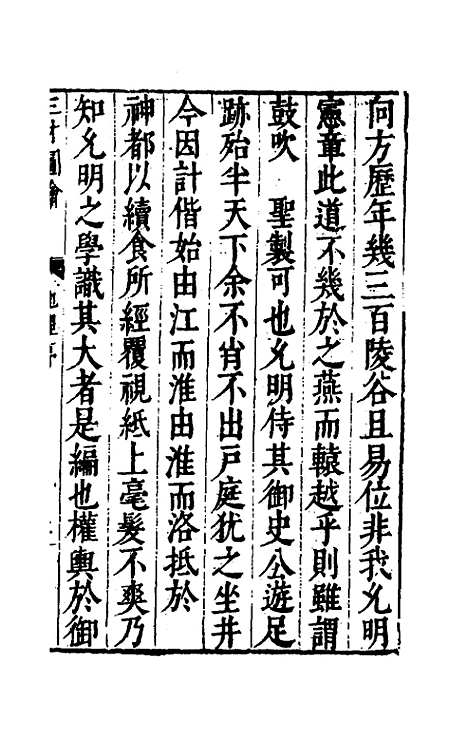 向方歷年幾三百陵谷且易位非我允明
憲章此道不幾於之燕而轅越乎則雖謂
鼓吹　聖製可也允明侍其御史公遊足
跡殆半天下余不肖不出戸庭猶之坐井
今因計偕始由江而淮由淮而洛抵於
神都以續食所經覆視紙上毫髮不爽乃
知允明之學識其大者是編也權輿於御
三才圖會　地理序